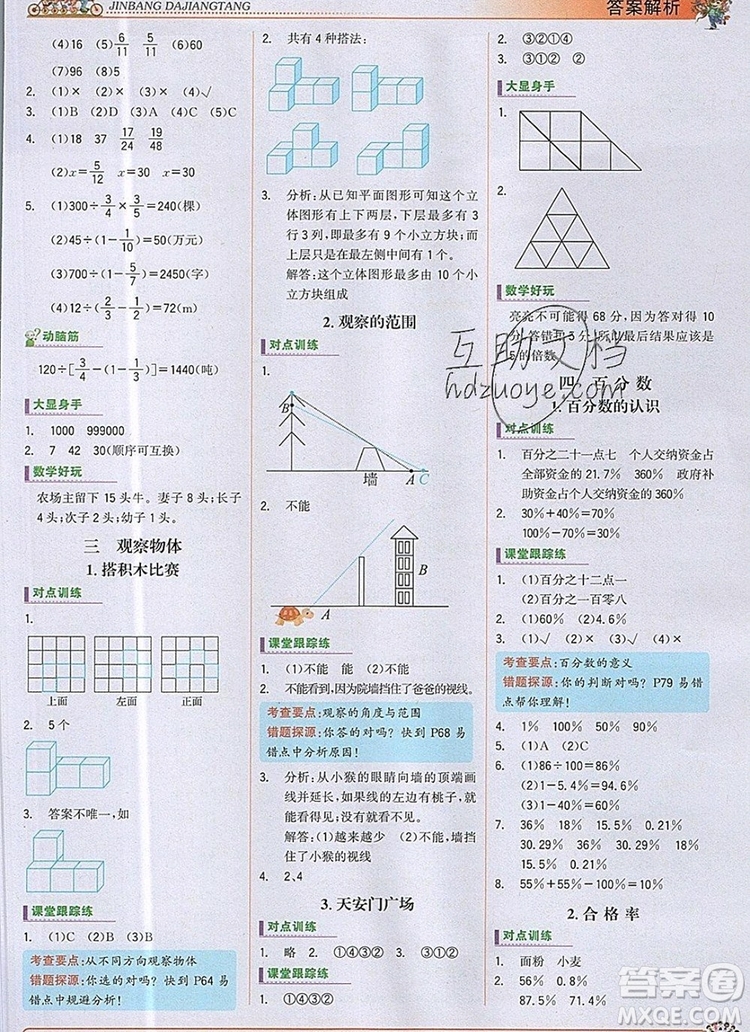 JINBANG DAJIANGTANG
答案解析
(4)16 (5)6/11 5/11
(7)96 (8)5
2. (1)× (2)× (3)× (4)√
3. (1)B (2)D (3)A (4)C (5)C
4. (1)18 37 17/24 19/48
(2)x=5/12 x=30 x=30
5. (1)300÷3/4×3/5=240(棵)
(2)45÷(1-1/10)=50(万元)
(3)700÷(1-5/7)=2450(字)
(4)12÷(2/3-1/2)=72(m)
动脑筋
120÷[3/4-(1-1/3)]=1440(吨)
大显身手
1. 1000 999000
2. 7 42 30(顺序可互换)
数学好玩
农场主留下 15 头牛。妻子 8 头;长子
4 头;次子 2 头;幼子 1 头。
三 观察物体
1.搭积木比赛
对点训练
1.
上面 左面 正面
2. 5 个
3. 答案不唯一,如
课堂跟踪练
1. (1)C (2)B (3)B
考查要点:从不同方向观察物体
错题探源:你选的对吗? 快到 P64 易
错点中规避分析!
2. 共有 4 种搭法:
3. 分析:从已知平面图形可知这个立
体图形有上下两层,下层最多有 3
行 3 列,即最多有 9 个小立方块;上
面一层总是在最左侧中间有 1 个。
解答:这个立体图形最多由 10 个小
立方块组成
2.观察的范围
对点训练
1.
B
墙 A C
2. 不能
B
A
课堂跟踪练
1. (1)不能 能 (2)不能
2. 不能看到,因为院墙挡住了爸爸的视线。
考查要点:观察的角度与范围
错题探源:你答的对吗? 快到 P68 易
错点中分析原因!
3. 分析:从小猴的眼睛向墙的顶端画
线并延长,如果线的左边有桃子,就
能看得见;否则就看不见。
解答:(1)越来越少 (2)不能,墙挡
住了小猴的视线
4. 2、4
3.天安门广场
对点训练
1. 略 2. ①④③② 3. ③①②
课堂跟踪练
1. ①④③②
2. ③②①④
3. ③①② ②
大显身手
1.
2.
数学好玩
亮亮不可能得 68 分,因为答对得 10
分,答错扣 5 分,所以最后结果应该是
5 的倍数
四 百分数
1.百分数的认识
对点训练
1. 百分之二十一点七 个人交纳资金占
全部资金的 21.7% 360% 政府补
助资金占个人交纳资金的 360%
2. 30%+40%=70%
100%-70%=30%
课堂跟踪练
1. (1)百分之十二点一
(2)百分之一百零八
2. (1)60% (2)4.6%
3. (1)√ (2)× (3)× (4)√
考查要点:百分数的意义
错题探源:你的判断对吗? P79 易错
点帮你理解!
4. 1% 100% 95% 200%
5. (1)A (2)C
6. (1)86÷100=86%
(2)1-5.4%=94.6%
(3)2÷4=50%
7. 36% 18% 15.5% 0.21%
30.29% 36% 30.29% 18%
15.5% 0.21%
8. 55%+55%-100%=10%
2.合格率
对点训练
1. 面粉 小麦
2. 56% 0.8% 22.5%
87.5% 71.4% 60%
互助文档
hdzuoye.com
答案圈
MXQE.COM